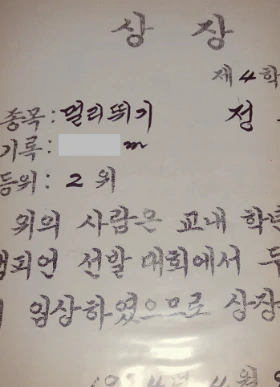 상 장
제 4 학
종목: 멀리뛰기 정
기록: m
등위: 2 위
위의 사람은 교내 학
선발 대회에서
입상하였으므로 상장